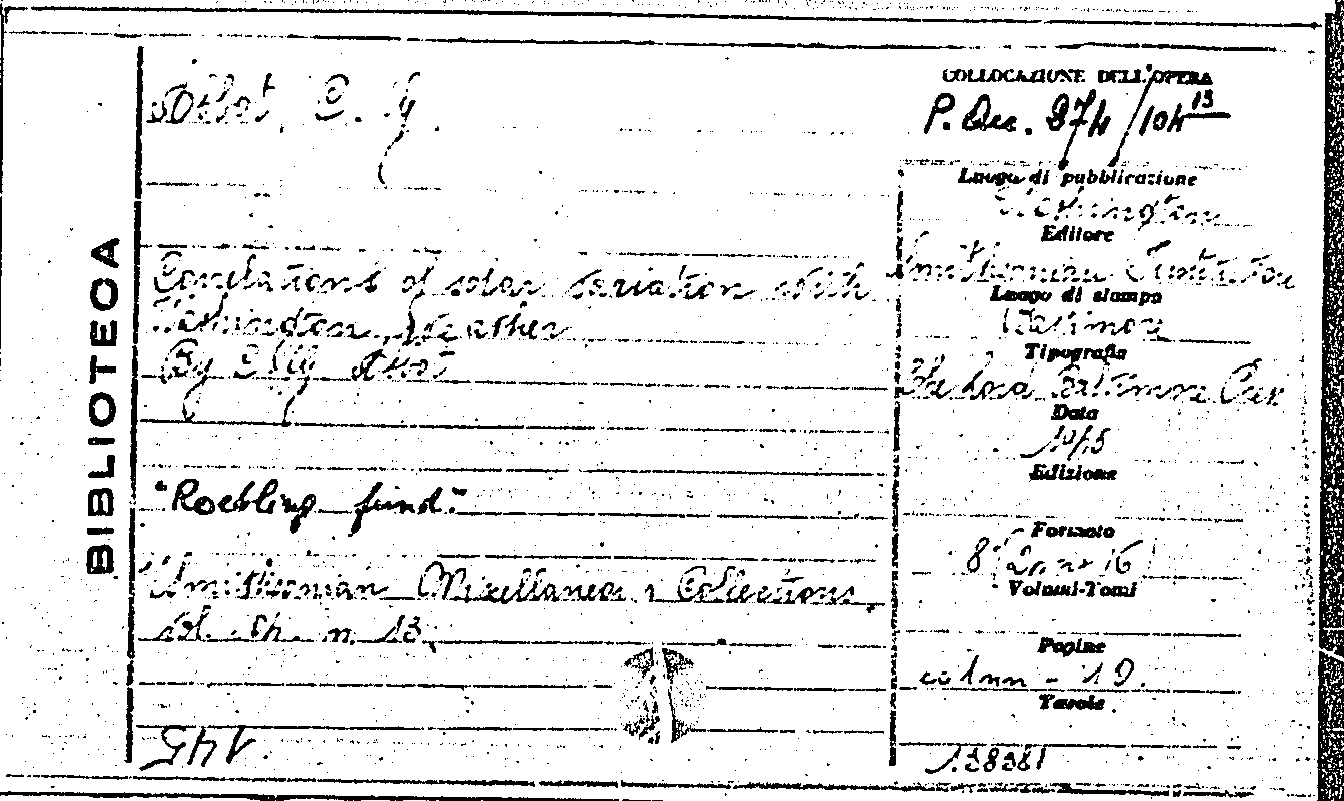 BIBLIOTECA
Abbot, C. G.
Correlations of solar variation with
Washington Weather
By C. G. Abbot
"Roebling fund."
Smithsonian Miscellaneous Collections
vol. 104. n. 13.
COLLOCAZIONE DELL'OPERA
P. Dec. 874/104 13
Luogo di pubblicazione
Washington
Editore
Smithsonian Institution
Luogo di stampa
Baltimore
Tipografia
Baltimore
Data
1945
Edizione
Formato
8°
Volumi-Tomi
Pagine
19.
Tavole
138381